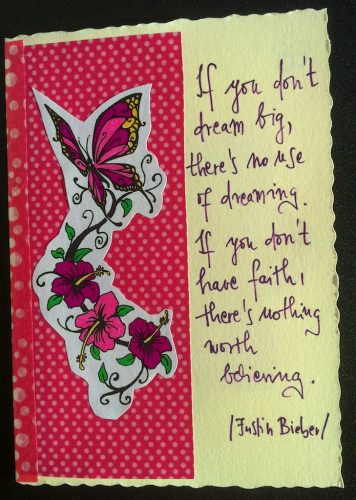 If you don't
dream big,
there's no use
of dreaming.
If you don't
have faith,
there's nothing
worth
believing.
/Justin Bieber/